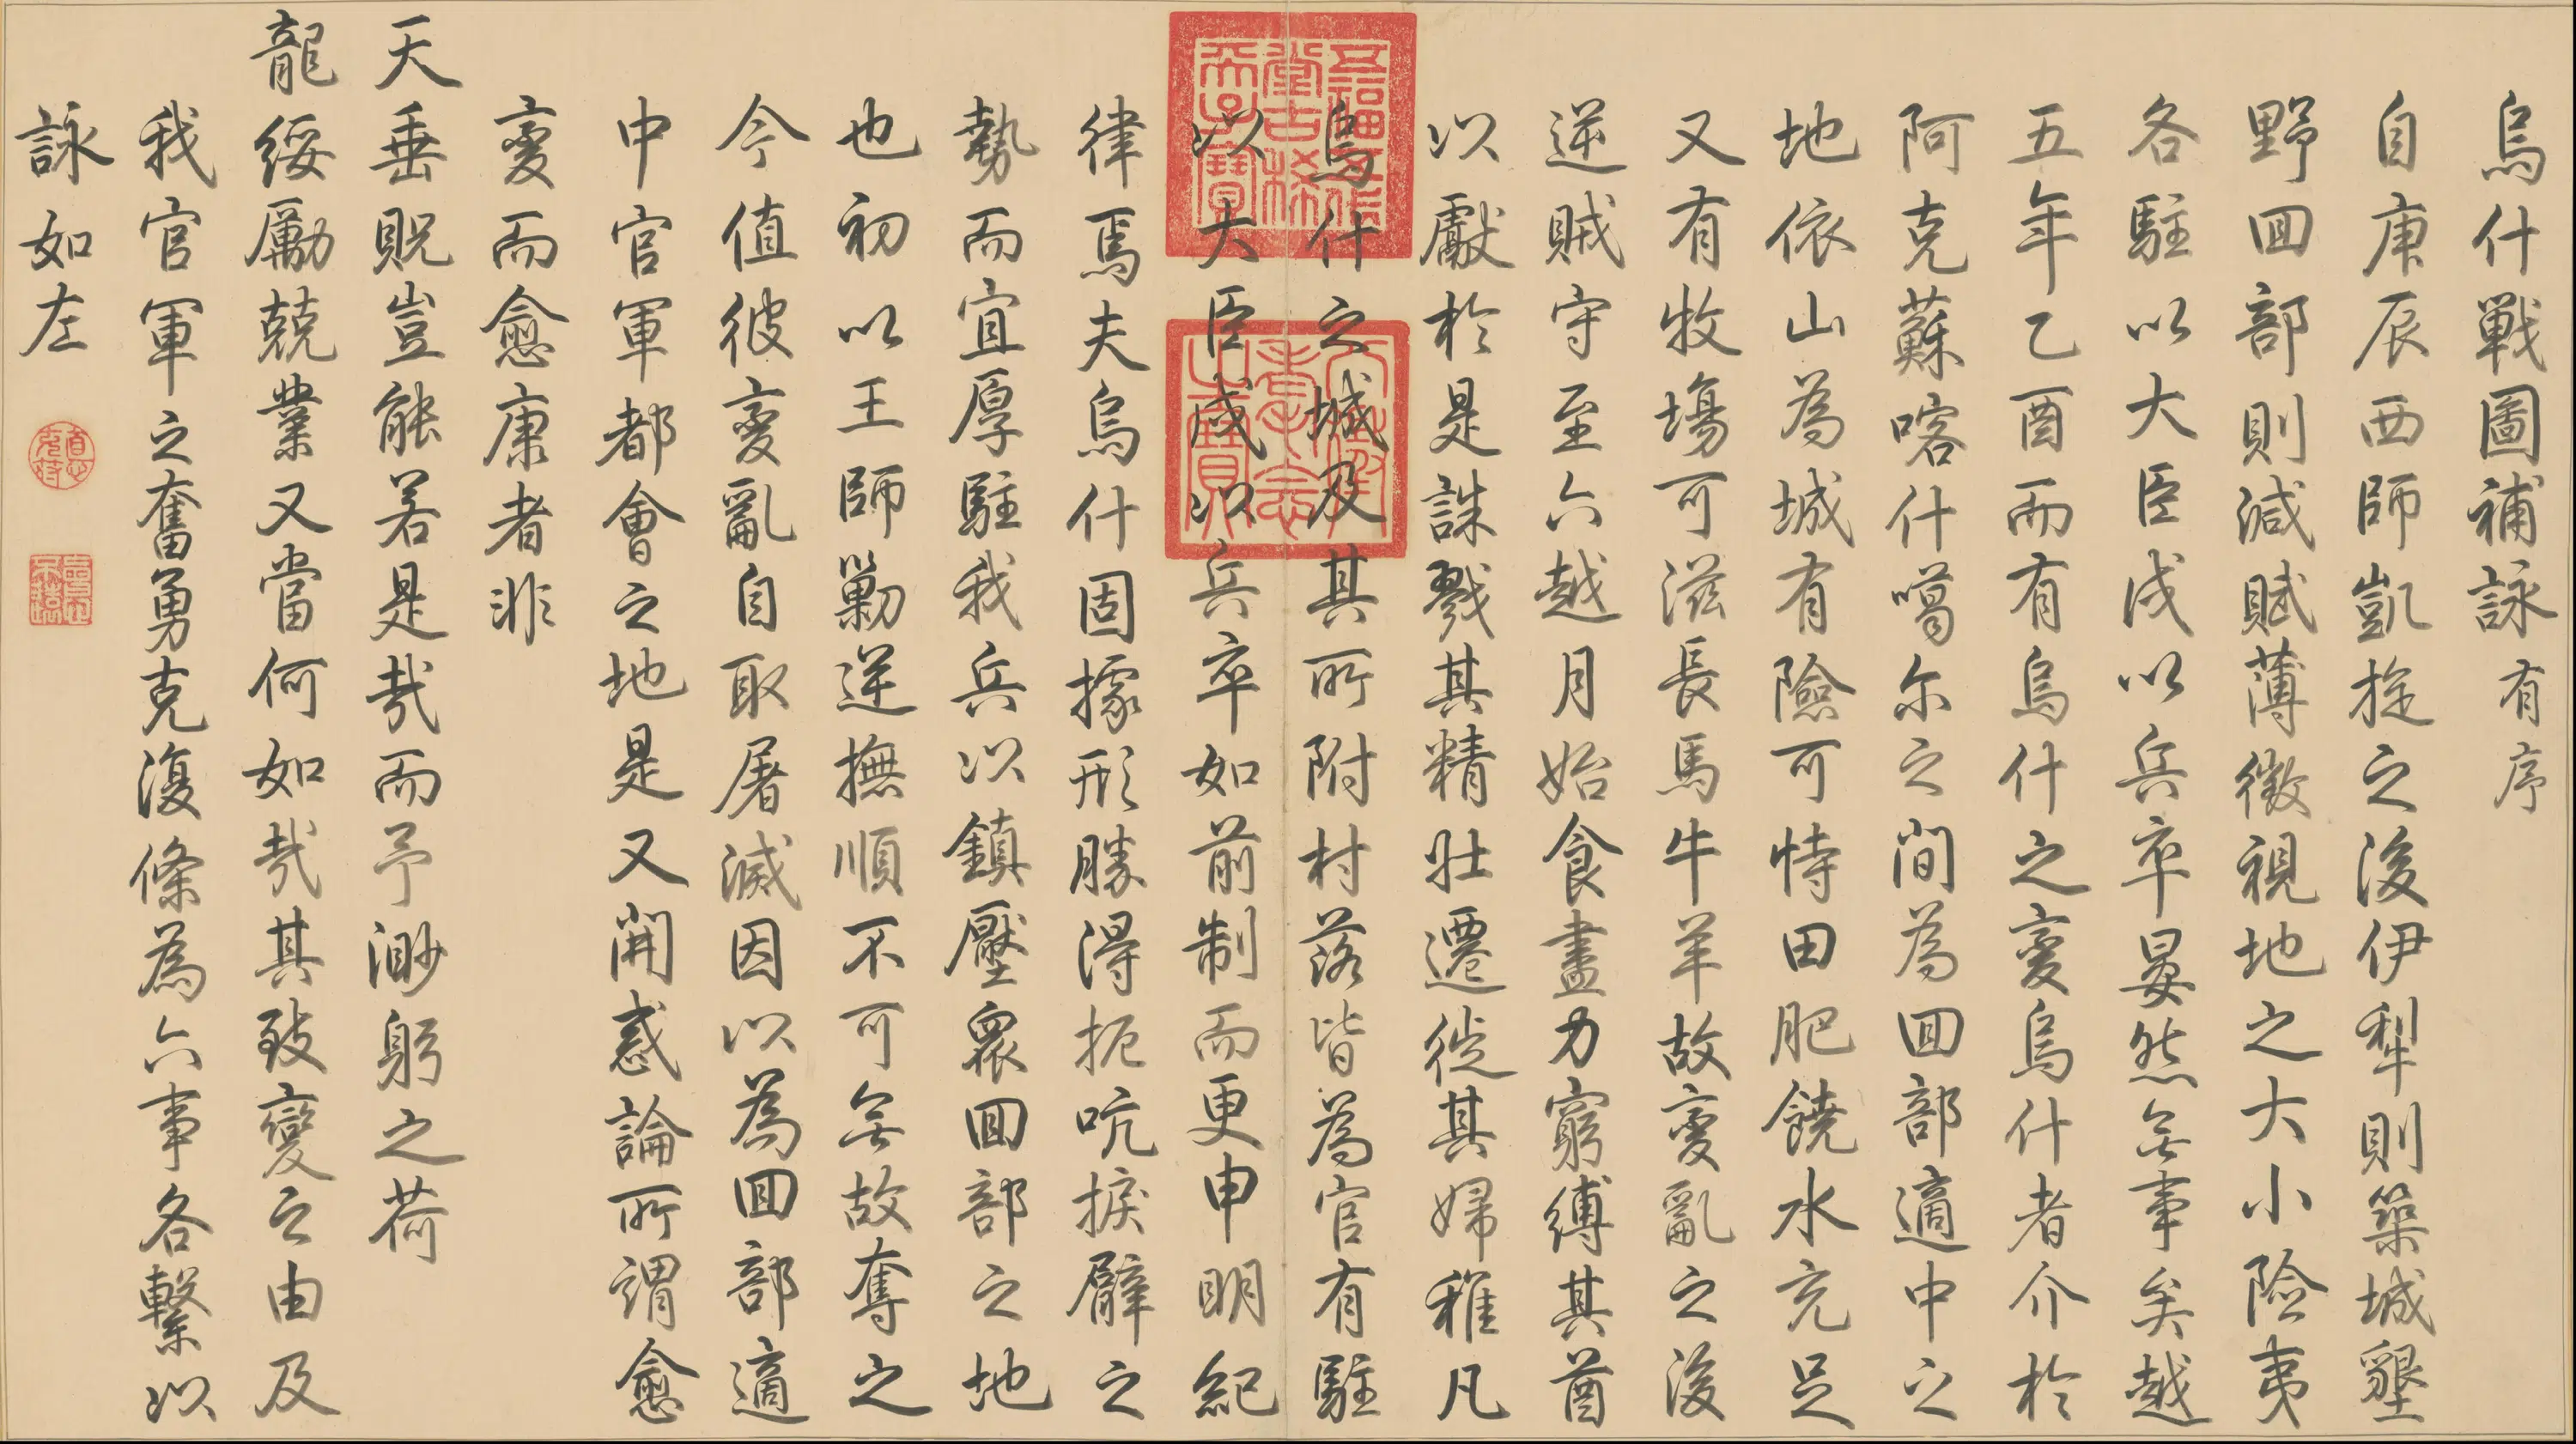 烏什戰圖補詠有序
自庚辰西師凱旋之後伊犁則築城墾
野回部則減賦薄徵視地之大小險夷
各駐以大臣戍以兵卒晏然無事矣越
五年乙酉而有烏什之變烏什者介於
阿克蘇喀什噶尔之間為回部適中之
地依山為城有險可恃田肥饒水充足
又有牧場可滋長馬牛羊故變亂之後
逆賊守至六越月始食盡力窮縛其酋
以獻於是誅戮其精壯遷徙其婦稚凡
烏什之城及其所附村落皆為官有駐
以大臣戍以兵卒如前制而更申明紀
律焉夫烏什固據形勝得扼吭捩臂之
勢而宜厚駐我兵以鎮壓眾回部之地
也初以王師勦逆撫順不可無故奪之
今值彼變亂自取屠滅因以為回部適
中官軍都會之地是又開惑論所謂愈
變而愈康者非
天垂貺豈能若是哉而予渺躬之荷
龍綏勵兢業又當何如哉其致變之由及
我官軍之奮勇克復條為六事各繫以
詠如左
五福五代堂古稀天子寶
八徵耄念之寶